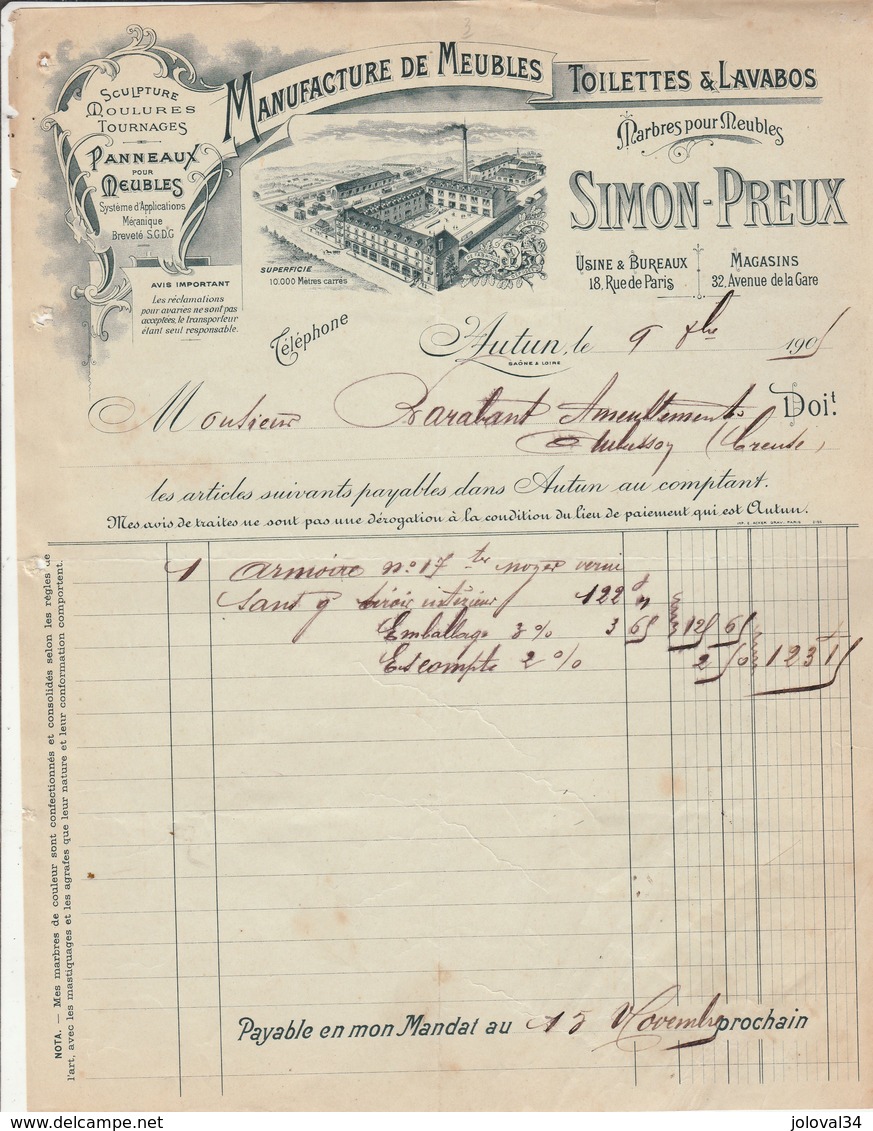 Sculpture
Moulures
Tournages
Panneaux
pour
Meubles
Système d'Applications
Mécanique
Breveté S.G.D.G
AVIS IMPORTANT
Les réclamations
pour avaries ne sont pas
acceptées, le transporteur
étant seul responsable.
Manufacture de Meubles
Toilettes & Lavabos
Marbres pour Meubles
Simon-Preux
Usine & Bureaux
18, Rue de Paris
Magasins
32, Avenue de la Gare
SUPERFICIE
10.000 Mètres carrés
Téléphone
Autun, le 9 1905
SAÔNE & LOIRE
Monsieur Barabant Ameublements Doit
Aubusson (Creuse)
les articles suivants payables dans Autun au comptant.
Mes avis de traites ne sont pas une dérogation à la condition du lieu de paiement qui est Autun.
1 armoire no 17 ter noyer verni
tiroir intérieur 122 "
Emballage 3 % 3 65 125 65
Escompte 2 % 2 50 123 15
Payable en mon Mandat au 15 Novembre prochain
NOTA. — Mes marbres de couleur sont confectionnés et consolidés selon les règles de
l'art, avec les mastiquages et les agrafes que leur nature et leur conformation comportent.
joloval34